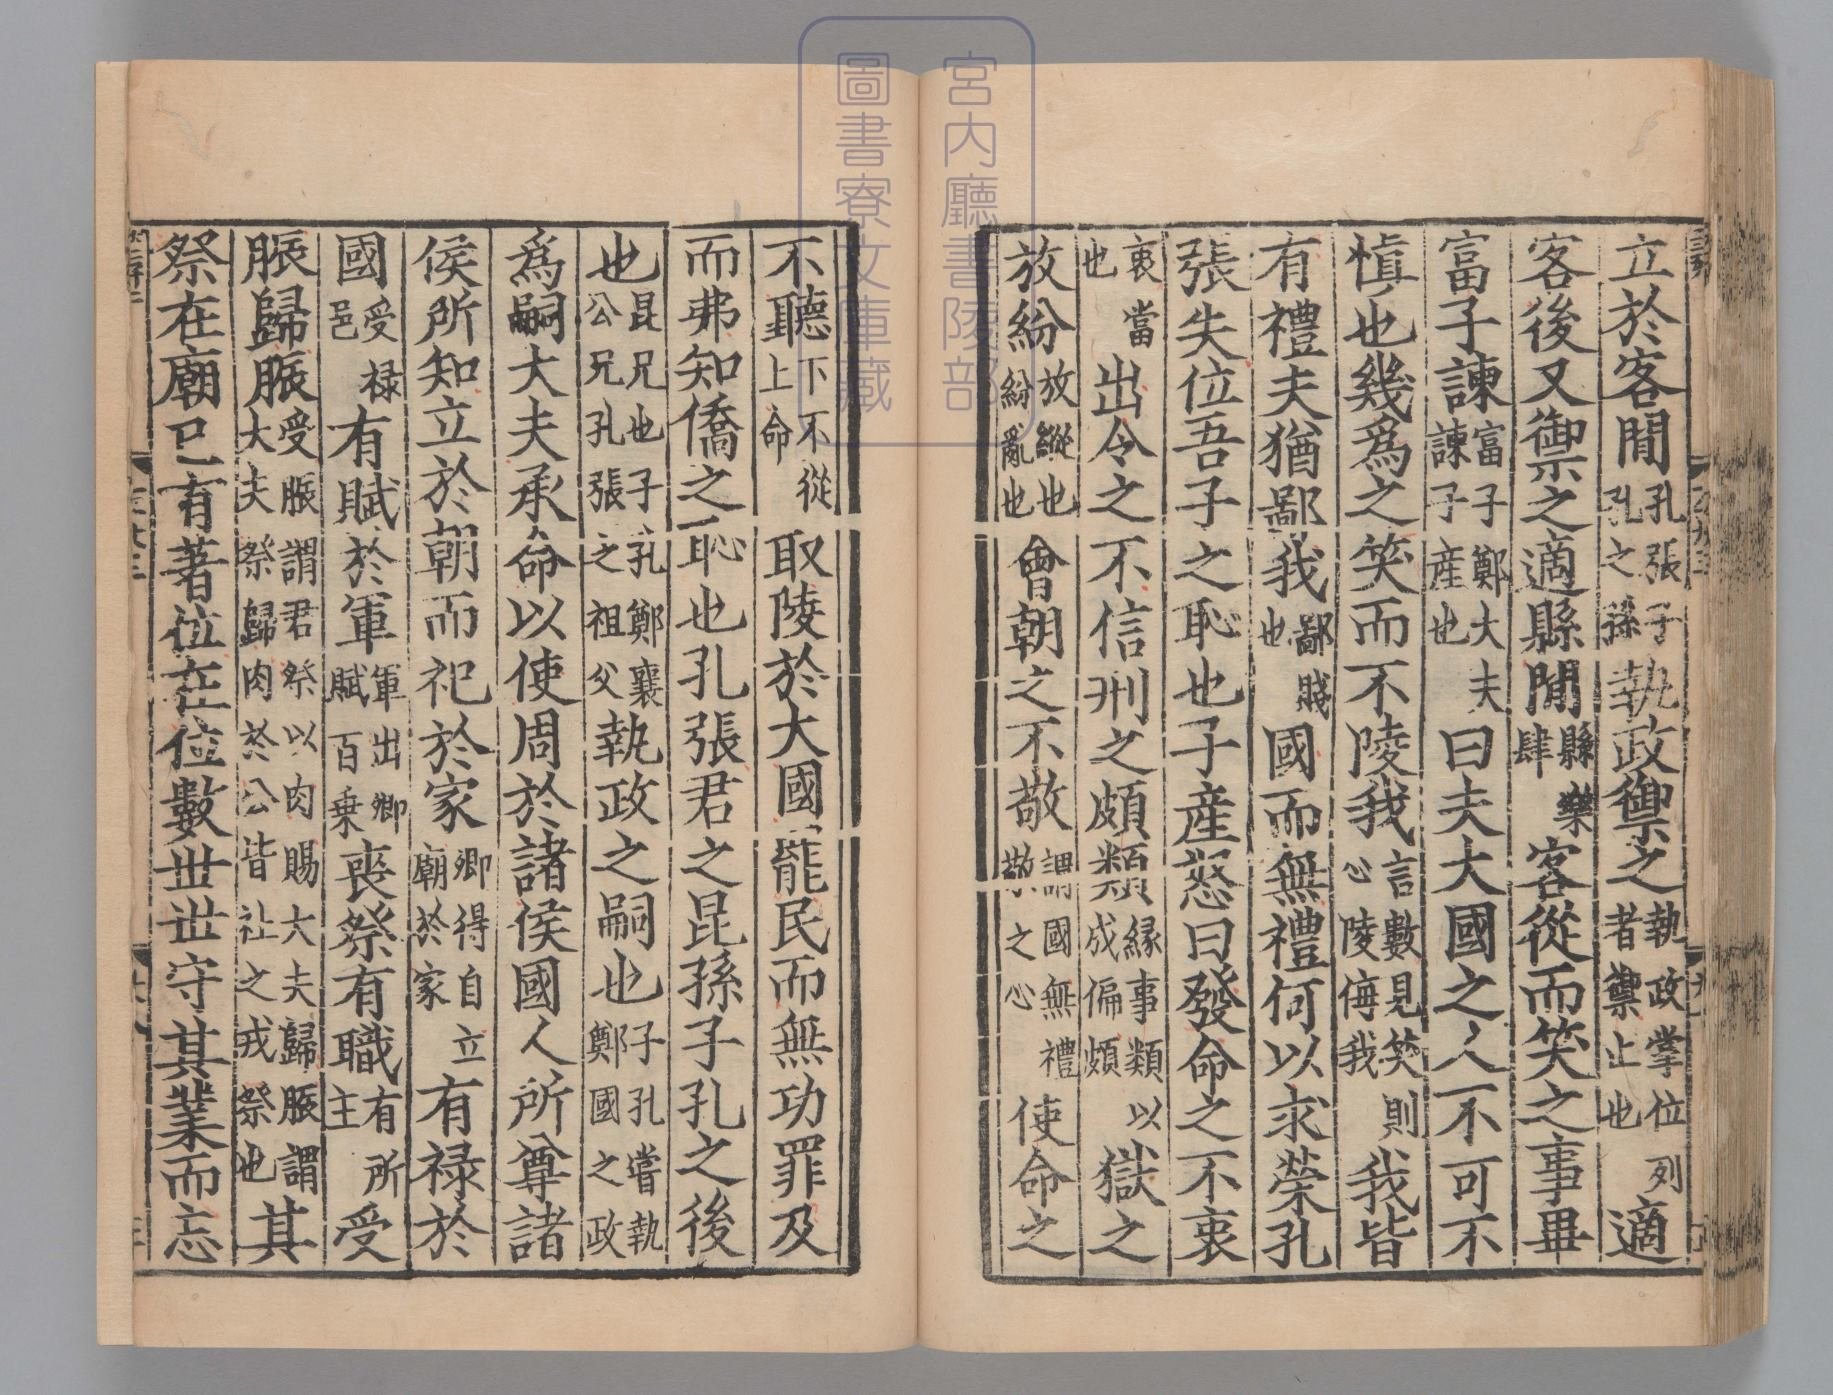 立於客閒孔張子孔之孫執政禦之執政掌位列者禦止也適
客後又禦之適縣閒縣樂肆客從而笑之事畢
富子諫富子鄭大夫諫子産也曰夫大國之人不可不
愼也幾爲之笑而不陵我言數見笑則心陵侮我我皆
有禮夫猶鄙我鄙賤也國而無禮何以求榮孔
張失位吾子之恥也子産怒曰發命之不衷
衷當也出令之不信刑之頗類緣事類以成偏頗獄之
放紛放縱也紛亂也會朝之不敬謂國無禮敬之心使命之
不聽下不從上命取陵於大國罷民而無功罪及
而弗知僑之恥也孔張君之昆孫子孔之後
也昆兄也子孔鄭襄公兄孔張之祖父執政之嗣也子孔嘗執鄭國之政
爲嗣大夫承命以使周於諸侯國人所尊諸
侯所知立於朝而祀於家卿得自立廟於家有禄於
國受禄邑有賦於軍軍出卿賦百乗喪祭有職有所主受
脤歸脤受脤謂君祭以肉賜大夫歸脤謂大夫祭歸肉於公皆社之戎祭也其
祭在廟已有著位在位數世世守其業而忘
宮内廳書陵部
圖書寮文庫藏